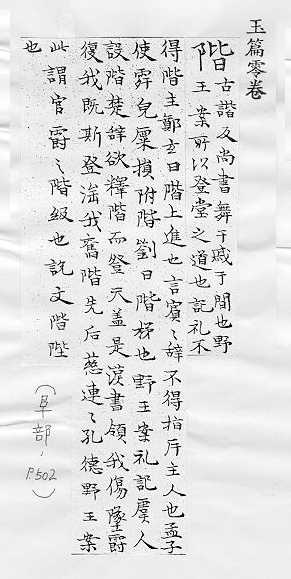 玉篇零卷
階
古諧反尚書舞干戚于間也野
王案所以登堂之道也記礼不
得階主鄭玄曰階上進也言賓〻辞不得指斥主人也孟子
使舜皃廩損附階劉曰階梯也野王案礼記虞人
設階楚辞欲釋階而登天盖是淚書領我傷墜爵
復我既斯登我舊階先后慈連〻孔德野王案
此謂官爵〻階級也說文階陛
也
（阜部，P.502）